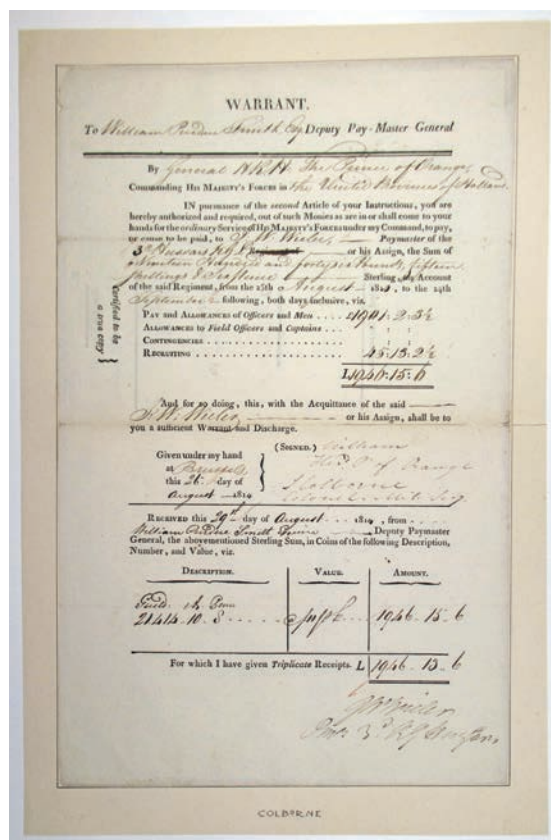 WARRANT.
To William Purdon Smith Esq Deputy Pay-Master General
By General H.R.H. The Prince of Orange,
Commanding His Majesty's Forces in the United Provinces of Holland.
IN pursuance of the second Article of your Instructions, you are
hereby authorized and required, out of such Monies as are in or shall come to your
hands for the ordinary Service of His Majesty's Forces under my Command, to pay,
or cause to be paid, to Paymaster of the
3d Hussars KGL or his Assign, the Sum of
Nineteen Hundred and forty six Pounds, fifteen
Shillings & Sixpence Sterling, on Account
of the said Regiment, from the 25th August 1814, to the 24th
September following, both days inclusive, viz.
Pay and Allowances of Officers and Men . . £1901. 2. 3½
Allowances to Field Officers and Captains . . .
Contingencies
Recruiting 45. 13. 2½
£1946. 15. 6
Certified to be
a true copy
And for so doing, this, with the Acquittance of the said
or his Assign, shall be to
you a sufficient Warrant and Discharge.
(Signed.) William
Given under my hand
Hedy P. of Orange
at Brussels,
this 26. day of
Colborne
August 1814
Colonel & Mily Secy
Received this 29th day of August . . . 1814, from
William Purdon Smith Deputy Paymaster
General, the abovementioned Sterling Sum, in Coins of the following Description,
Number, and Value, viz.
Description. Value. Amount.
21414. 10. 8 1946. 15. 6
For which I have given Triplicate Receipts. L 1946. 15. 6
3d KG Hussars
COLBORNE